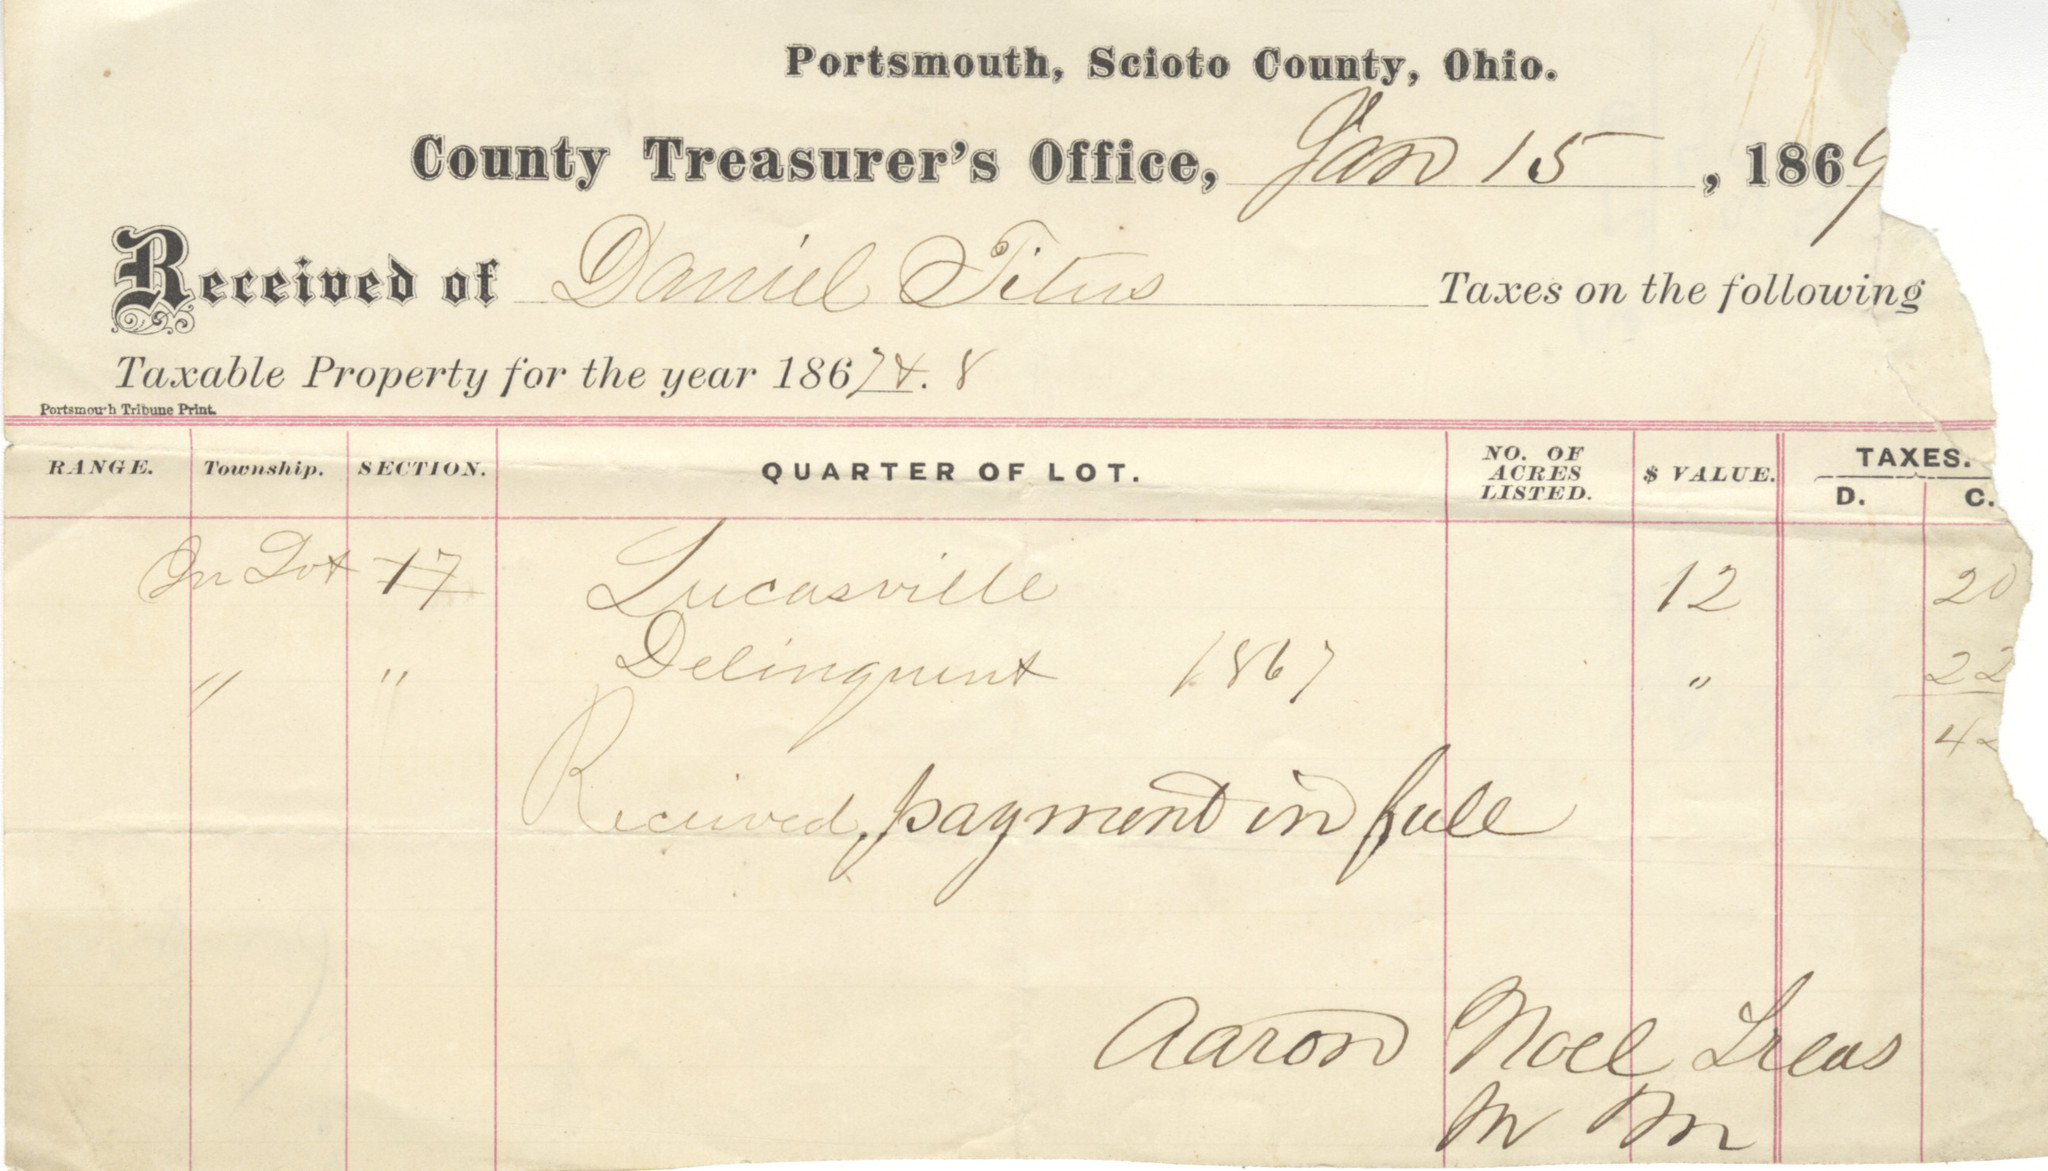 Portsmouth, Scioto County, Ohio.
County Treasurer's Office, Jan 15, 1869
Received of Daniel Titus Taxes on the following
Taxable Property for the year 1867 & 8
Portsmouth Tribune Print.
RANGE. Township. SECTION. QUARTER OF LOT. NO. OF ACRES LISTED. $ VALUE. TAXES. D. C.
In Lot 17 Lucasville 12 20
" " Delinquent 1867 " 22
42
Received payment in full
Aaron Noel Treas